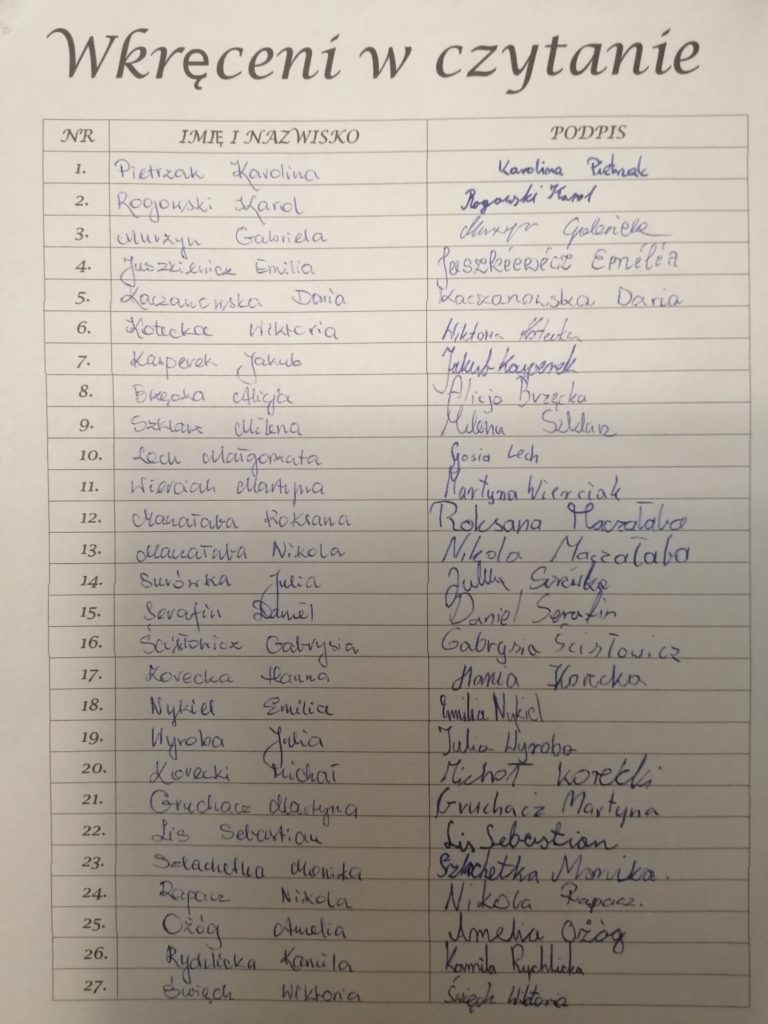 Wkręceni w czytanie
NR IMIĘ I NAZWISKO PODPIS
1. Pietrzak Karolina Karolina Pietrzak
2. Rogowski Karol Rogowski Karol
3. Murzyn Gabriela Murzyn Gabriela
4. Juszkiewicz Emilia Juszkiewicz Emilia
5. Kaczanowska Daria Kaczanowska Daria
6. Kotecka Wiktoria Wiktoria Kotecka
7. Kasperek Jakub Jakub Kasperek
8. Brzęcka Alicja Alicja Brzęcka
9. Szklarz Milena Milena Szklarz
10. Lech Małgorzata Gosia Lech
11. Wierciak Martyna Martyna Wierciak
12. Maczałaba Roksana Roksana Maczałaba
13. Maczałaba Nikola Nikola Maczałaba
14. Surówka Julia Julka Surówka
15. Serafin Daniel Daniel Serafin
16. Ścisłowicz Gabrysia Gabrysia Ścisłowicz
17. Korecka Hanna Hania Korecka
18. Nykiel Emilia Emilia Nykiel
19. Wyroba Julia Julia Wyroba
20. Korecki Michał Michał Korecki
21. Gruchacz Martyna Gruchacz Martyna
22. Lis Sebastian Lis Sebastian
23. Szlachetka Monika Szlachetka Monika.
24. Rapacz Nikola Nikola Rapacz.
25. Ożóg Amelia Amelia Ożóg
26. Rychlicka Kamila Kamila Rychlicka
27. Święch Wiktoria Święch Wiktoria